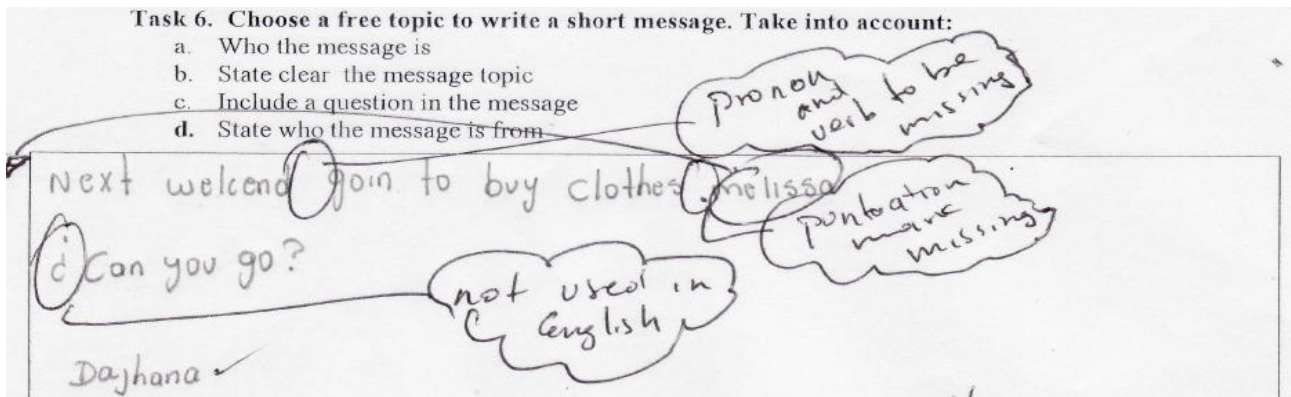 Task 6. Choose a free topic to write a short message. Take into account:
a. Who the message is
b. State clear the message topic
c. Include a question in the message
d. State who the message is from
pronon
and
verb to be
missing
Next welcend goin to buy clothes. melissa
puntuation
mark
missing
¿Can you go?
not used in
English
Dajhana